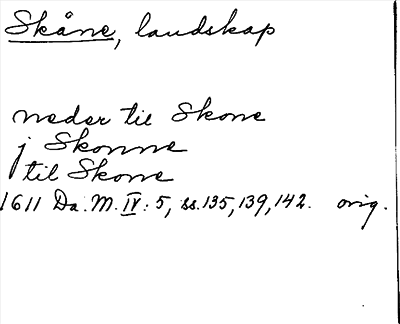 Skåne, landskap
neder til Skone
j Skonne
til Skone
1611 Da. M. IV: 5, ss. 135, 139, 142. orig.